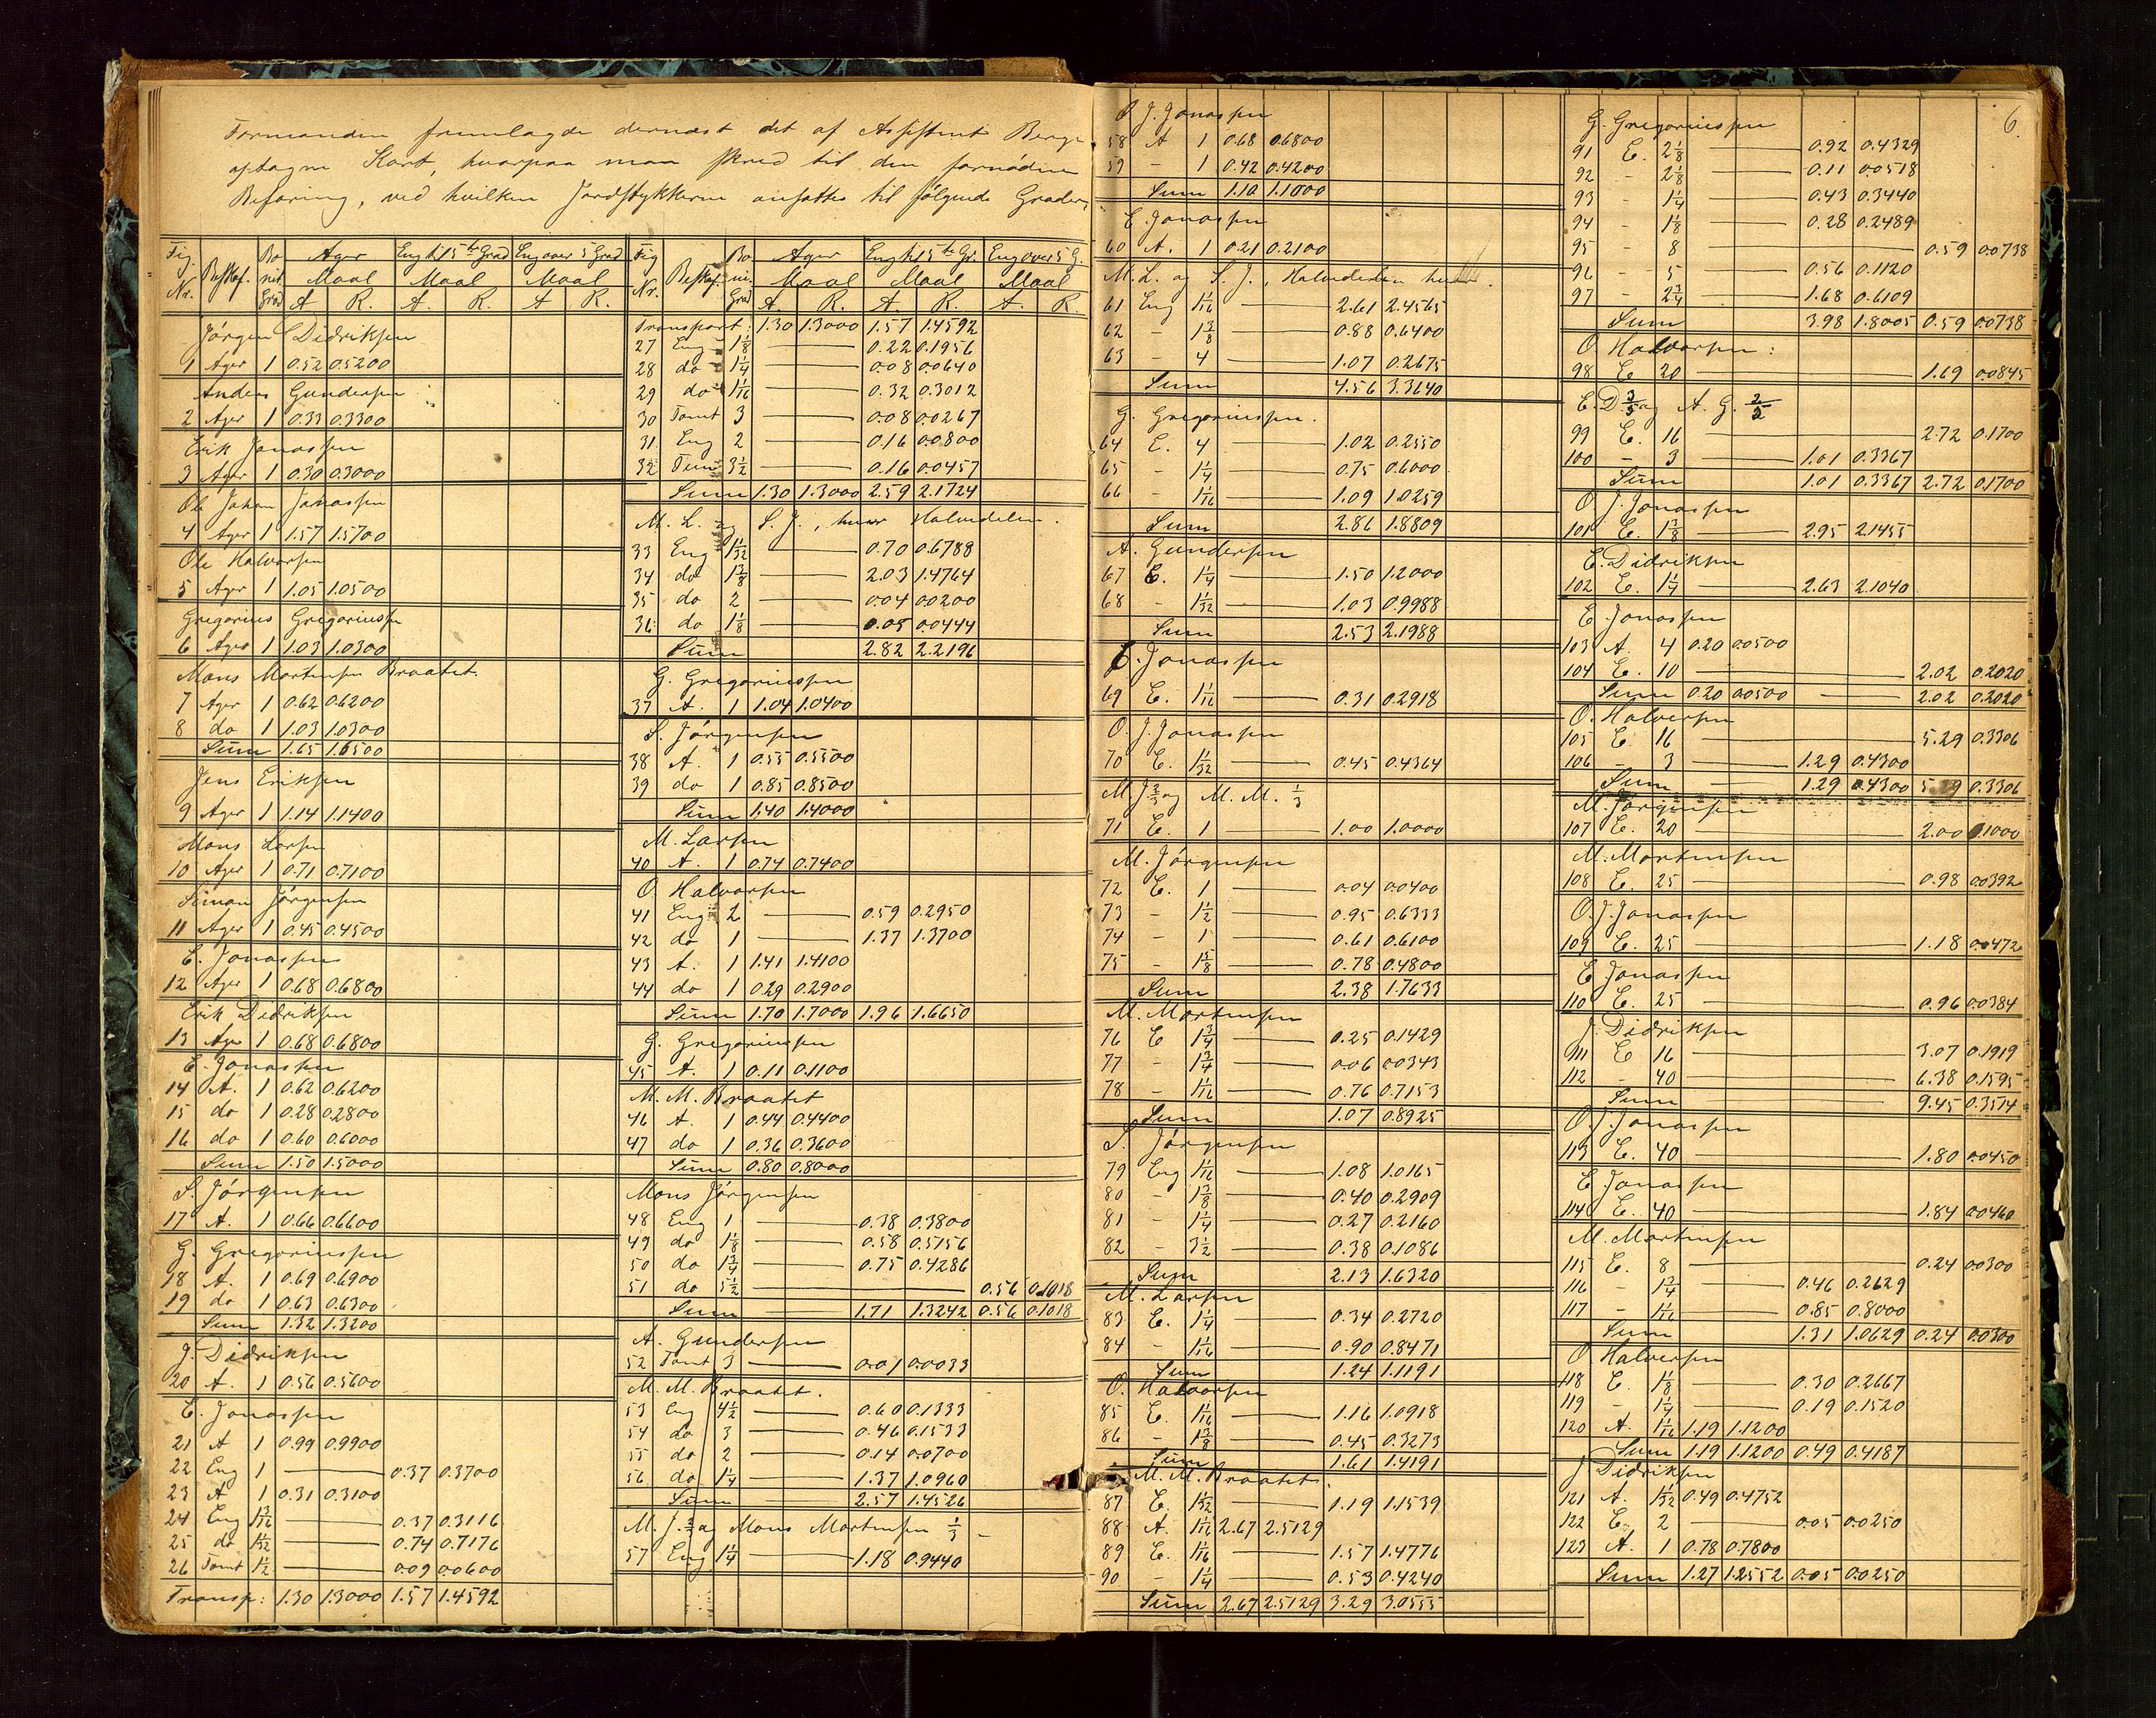 Formanden fremlagde dernæst det af Assistent Berge
optagne Kart, hvorpaa man skred til den fornødne
Befaring, ved hvilken Jordstykkerne ansattes til følgende Grader,
Fig. Nr. Beskaf. Bonit. Grad Ager Maal A R. Eng til 5te Grad Maal A. R. Eng over 5 Grad Maal A R.
Jørgen E Didriksen
1 Ager 1 0.52 0.5200
Anders Gundersen
2 Ager 1 0.33 0.3300
Erik Jonassen
3 Ager 1 0.30 0.3000
Ole Johan Jonassen
4 Ager 1 1.57 1.5700
Ole Halvorsen
5 Ager 1 1.05 1.0500
Gregorius Gregoriussen
6 Ager 1 1.03 1.0300
Mons Mortensen Braatet.
7 Ager 1 0.62 0.6200
8 do 1 1.03 1.0300
Sum 1.65 1.6500
Jens Eriksen
9 Ager 1 1.14 1.1400
Mons Larsen
10 Ager 1 0.71 0.7100
Simon Jørgensen
11 Ager 1 0.45 0.4500
E. Jonassen
12 Ager 1 0.68 0.6800
Erik Didriksen
13 Ager 1 0.68 0.6800
E. Jonassen
14 A. 1 0.62 0.6200
15 do 1 0.28 0.2800
16 do 1 0.60 0.6000
Sum 1.50 1.5000
S. Jørgensen
17 A. 1 0.66 0.6600
G. Gregoriussen
18 A. 1 0.69 0.6900
19 do 1 0.63 0.6300
Sum 1.32 1.3200
J. Didriksen
20 A. 1 0.56 0.5600
E. Jonassen
21 A 1 0.99 0.9900
22 Eng 1 — 0.37 0.3700
23 A 1 0.31 0.3100
24 Eng 1 3/16 — 0.37 0.3116
25 do 1 1/32 — 0.74 0.7176
26 Tomt 1 1/2 — 0.09 0.0600
Transp: 1.30 1.3000 1.57 1.4592
Fig Nr. Beskaf. Bonit. Grad Ager Maal A. R. Eng til 5te Gr. Maal A. R. Eng over 5 G. Maal A. R.
Transport: 1.30 1.3000 1.57 1.4592
27 Eng 1 1/8 — 0.22 0.1956
28 do 1 1/4 — 0.08 0.0640
29 do 1 1/16 — 0.32 0.3012
30 Tomt 3 — 0.08 0.0267
31 Eng 2 — 0.16 0.0800
32 3 1/2 — 0.16 0.0457
Sum 1.30 1.3000 2.59 2.1724
M. L. og S. J., hver Halvdelen.
33 Eng 1 1/32 — 0.70 0.6788
34 do 1 3/8 — 2.03 1.4764
35 do 2 — 0.04 0.0200
36 do 1 1/8 — 0.05 0.0444
Sum 2.82 2.2196
G. Gregoriussen
37 A. 1 1.04 1.0400
S. Jørgensen
38 A. 1 0.55 0.5500
39 do 1 0.85 0.8500
Sum 1.40 1.4000
M. Larsen
40 A. 1 0.74 0.7400
O. Halvorsen
41 Eng 2 — 0.59 0.2950
42 do 1 — 1.37 1.3700
43 A. 1 1.41 1.4100
44 do 1 0.29 0.2900
Sum 1.70 1.7000 1.96 1.6650
G. Gregoriussen
45 A. 1 0.11 0.1100
M. M. Braatet
46 A. 1 0.44 0.4400
47 do 1 0.36 0.3600
Sum 0.80 0.8000
Mons Jørgensen
48 Eng 1 — 0.38 0.3800
49 do 1 1/8 — 0.58 0.5156
50 do 1 3/4 — 0.75 0.4286
51 do 5 1/2 — 0.56 0.1018
Sum — 1.71 1.3242 0.56 0.1018
A. Gundersen
52 Tomt 3 — 0.01 0.0033
M. M. Braatet.
53 Eng 4 1/2 — 0.60 0.1333
54 do 3 — 0.46 0.1533
55 do 2 — 0.14 0.0700
56 do 1 1/4 — 1.37 1.0960
Sum — 2.57 1.4526
M. J. 2/3 og Mons Mortensen 1/3 —
57 Eng 1 1/4 — 1.18 0.9440
O. J. Jonassen
58 A 1 0.68 0.6800
59 - 1 0.42 0.4200
Sum 1.10 1.1000
E. Jonassen
60 A. 1 0.21 0.2100
M. L. og S. J., Halvdelen hver.
61 Eng 1 1/16 — 2.61 2.4565
62 - 1 3/8 — 0.88 0.6400
63 - 4 — 1.07 0.2675
Sum 4.56 3.3640
G. Gregoriussen.
64 E. 4 — 1.02 0.2550
65 - 1 1/4 — 0.75 0.6000
66 - 1 1/16 — 1.09 1.0259
Sum 2.86 1.8809
A. Gundersen
67 E. 1 1/4 — 1.50 1.2000
68 - 1 1/32 — 1.03 0.9988
Sum 2.53 2.1988
E. Jonassen
69 E. 1 1/16 — 0.31 0.2918
O. J. Jonassen
70 E. 1 1/32 — 0.45 0.4364
M. J. 2/3 og M. M. 1/3
71 E. 1 — 1.00 1.0000
M. Jørgensen
72 E. 1 — 0.04 0.0400
73 - 1 1/2 — 0.95 0.6333
74 - 1 — 0.61 0.6100
75 - 1 5/8 — 0.78 0.4800
Sum 2.38 1.7633
M. Mortensen
76 E 1 3/4 — 0.25 0.1429
77 - 1 3/4 — 0.06 0.0343
78 - 1 1/16 — 0.76 0.7153
Sum 1.07 0.8925
S. Jørgensen
79 Eng 1 1/16 — 1.08 1.0165
80 - 1 3/8 — 0.40 0.2909
81 - 1 1/4 — 0.27 0.2160
82 - 3 1/2 — 0.38 0.1086
Sum 2.13 1.6320
M. Larsen
83 E. 1 1/4 — 0.34 0.2720
84 - 1 1/16 — 0.90 0.8471
Sum 1.24 1.1191
O. Halvorsen
85 E. 1 1/16 — 1.16 1.0918
86 - 1 3/8 — 0.45 0.3273
Sum 1.61 1.4191
M. M. Braatet.
87 E. 1 1/32 — 1.19 1.1539
88 A. 1 1/16 2.67 2.5129
89 E. 1 1/16 — 1.57 1.4776
90 - 1 1/4 — 0.53 0.4240
Sum 2.67 2.5129 3.29 3.0555
6.
G. Gregoriussen
91 E. 2 1/8 — 0.92 0.4329
92 - 2 1/8 — 0.11 0.0518
93 - 1 1/4 — 0.43 0.3440
94 - 1 1/8 — 0.28 0.2489
95 - 8 — 0.59 0.0738
96 - 5 — 0.56 0.1120
97 - 2 3/4 — 1.68 0.6109
Sum 3.98 1.8005 0.59 0.0738
O Halvorsen:
98 E 20 — 1.69 0.0845
E. D. 3/5 og A. G. 2/5
99 E. 16 — 2.72 0.1700
100 - 3 — 1.01 0.3367
Sum 1.01 0.3367 2.72 0.1700
O. J. Jonassen
101 E. 1 3/8 — 2.95 2.1455
E. Didriksen
102 E. 1 1/4 — 2.63 2.1040
E Jonassen
103 A. 4 0.20 0.0500
104 E. 10 — 2.02 0.2020
Sum 0.20 0.0500 — 2.02 0.2020
O. Halvorsen
105 E. 16 — 5.29 0.3306
106 - 3 — 1.29 0.4300
Sum — 1.29 0.4300 5.29 0.3306
M. Jørgensen
107 E. 20 — 2.00 0.1000
M. Mortensen
108 E. 25 — 0.98 0.0392
O. J. Jonassen
109 E. 25 — 1.18 0.0472
E Jonassen
110 E. 25 — 0.96 0.0384
J. Didriksen
111 E 16 — 3.07 0.1919
112 - 40 — 6.38 0.1595
Sum — 9.45 0.3514
O. J. Jonassen
113 E. 40 — 1.80 0.0450
E Jonassen
114 E. 40 — 1.84 0.0460
M. Mortensen
115 E. 8 — 0.24 0.0300
116 - 1 3/4 — 0.46 0.2629
117 - 1 1/16 — 0.85 0.8000
Sum 1.31 1.0629 0.24 0.0300
O Halvorsen
118 E. 1 1/8 — 0.30 0.2667
119 - 1 1/4 — 0.19 0.1520
120 A. 1 1/16 1.19 1.1200
Sum 1.19 1.1200 0.49 0.4187
J Didriksen
121 A. 1 1/32 0.49 0.4752
122 E. 2 — 0.05 0.0250
123 A. 1 0.78 0.7800
Sum 1.27 1.2552 0.05 0.0250